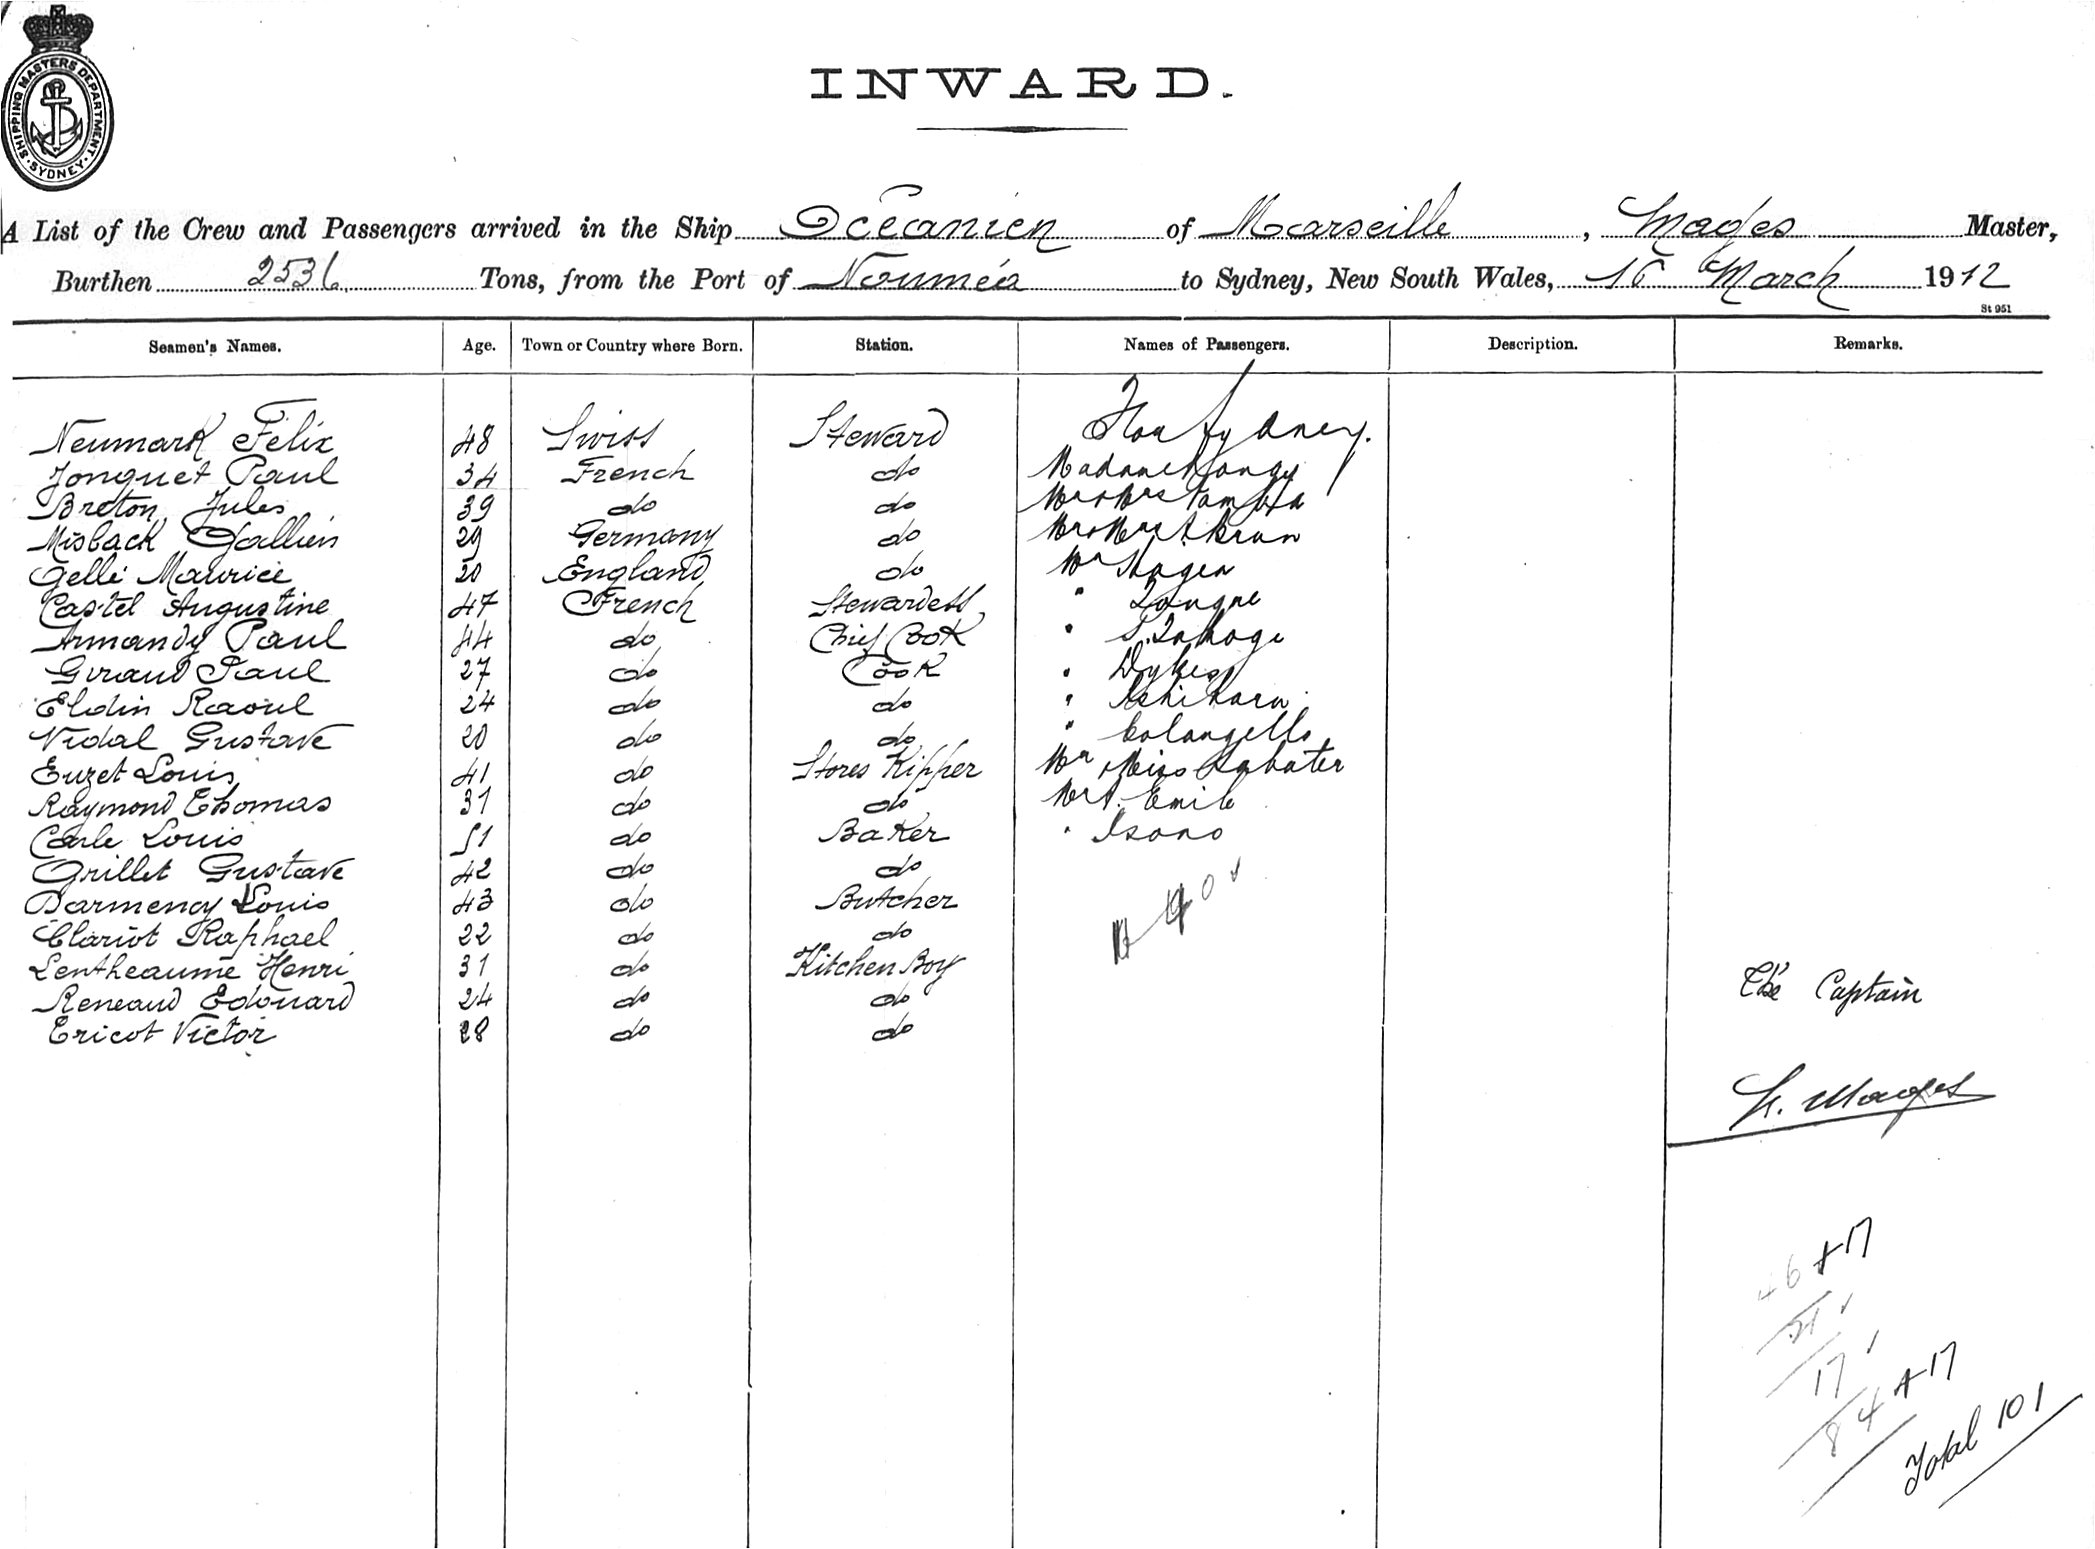 SHIPPING MASTERS DEPARTMENT. SYDNEY
INWARD.
A List of the Crew and Passengers arrived in the Ship Océanien of Marseille, Mages Master,
Burthen 2536 Tons, from the Port of Nouméa to Sydney, New South Wales, 16 March 1912
St 951
Seamen's Names. Age. Town or Country where Born. Station. Names of Passengers. Description. Remarks.
Neumark Félix 48 Swiss Steward For Sydney.
Jonquet Paul 34 French do Madame
Breton Jules 39 do do Mr & Mrs
Misback Gallien 29 Germany do Mr & Mrs
Gellé Maurice 20 England do Mr Hagen
Castel Augustine 47 French Stewardess "
Armandy Paul 44 do Chief Cook "
Giraud Paul 27 do Cook " Dykes
Eldin Raoul 24 do do " Ishihara
Vidal Gustave 20 do do " Colangello
Euzet Louis 41 do Stores Kipper Mr & Miss Sabater
Raymond Thomas 31 do do Emile
Carle Louis 51 do Baker " Isono
Grillet Gustave 42 do do
Barmency Louis 43 do Butcher
Clariot Raphael 22 do do
Lentheaume Henri 31 do Kitchen Boy
Reneaud Edouard 24 do do
Ericot Victor 28 do do
The Captain
Mages
46 + 17
21
17
84 + 17
Total 101